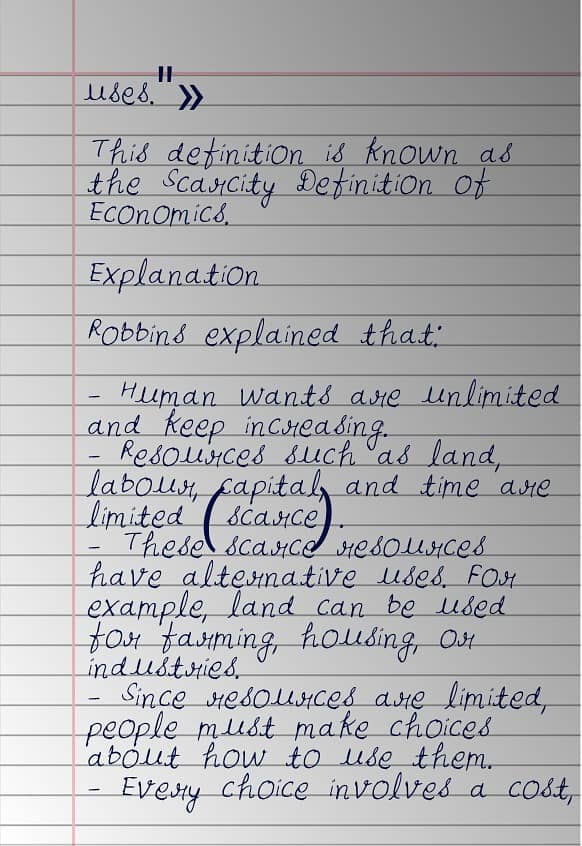 uses."»
This definition is known as
the Scarcity Definition of
Economics.
Explanation
Robbins explained that:
- Human wants are unlimited
and keep increasing.
- Resources such as land,
labour, capital, and time are
limited (scarce).
- These scarce resources
have alternative uses. For
example, land can be used
for farming, housing, or
industries.
- Since resources are limited,
people must make choices
about how to use them.
- Every choice involves a cost,